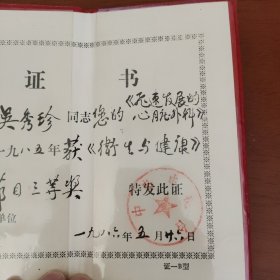 证 书
吴秀珍 同志您的《飞速发展的
心脏外科》
一九八五年获《衛生与健康》
节目三等奖 特发此证
单位
一九八六年五月廿六日
证—B型